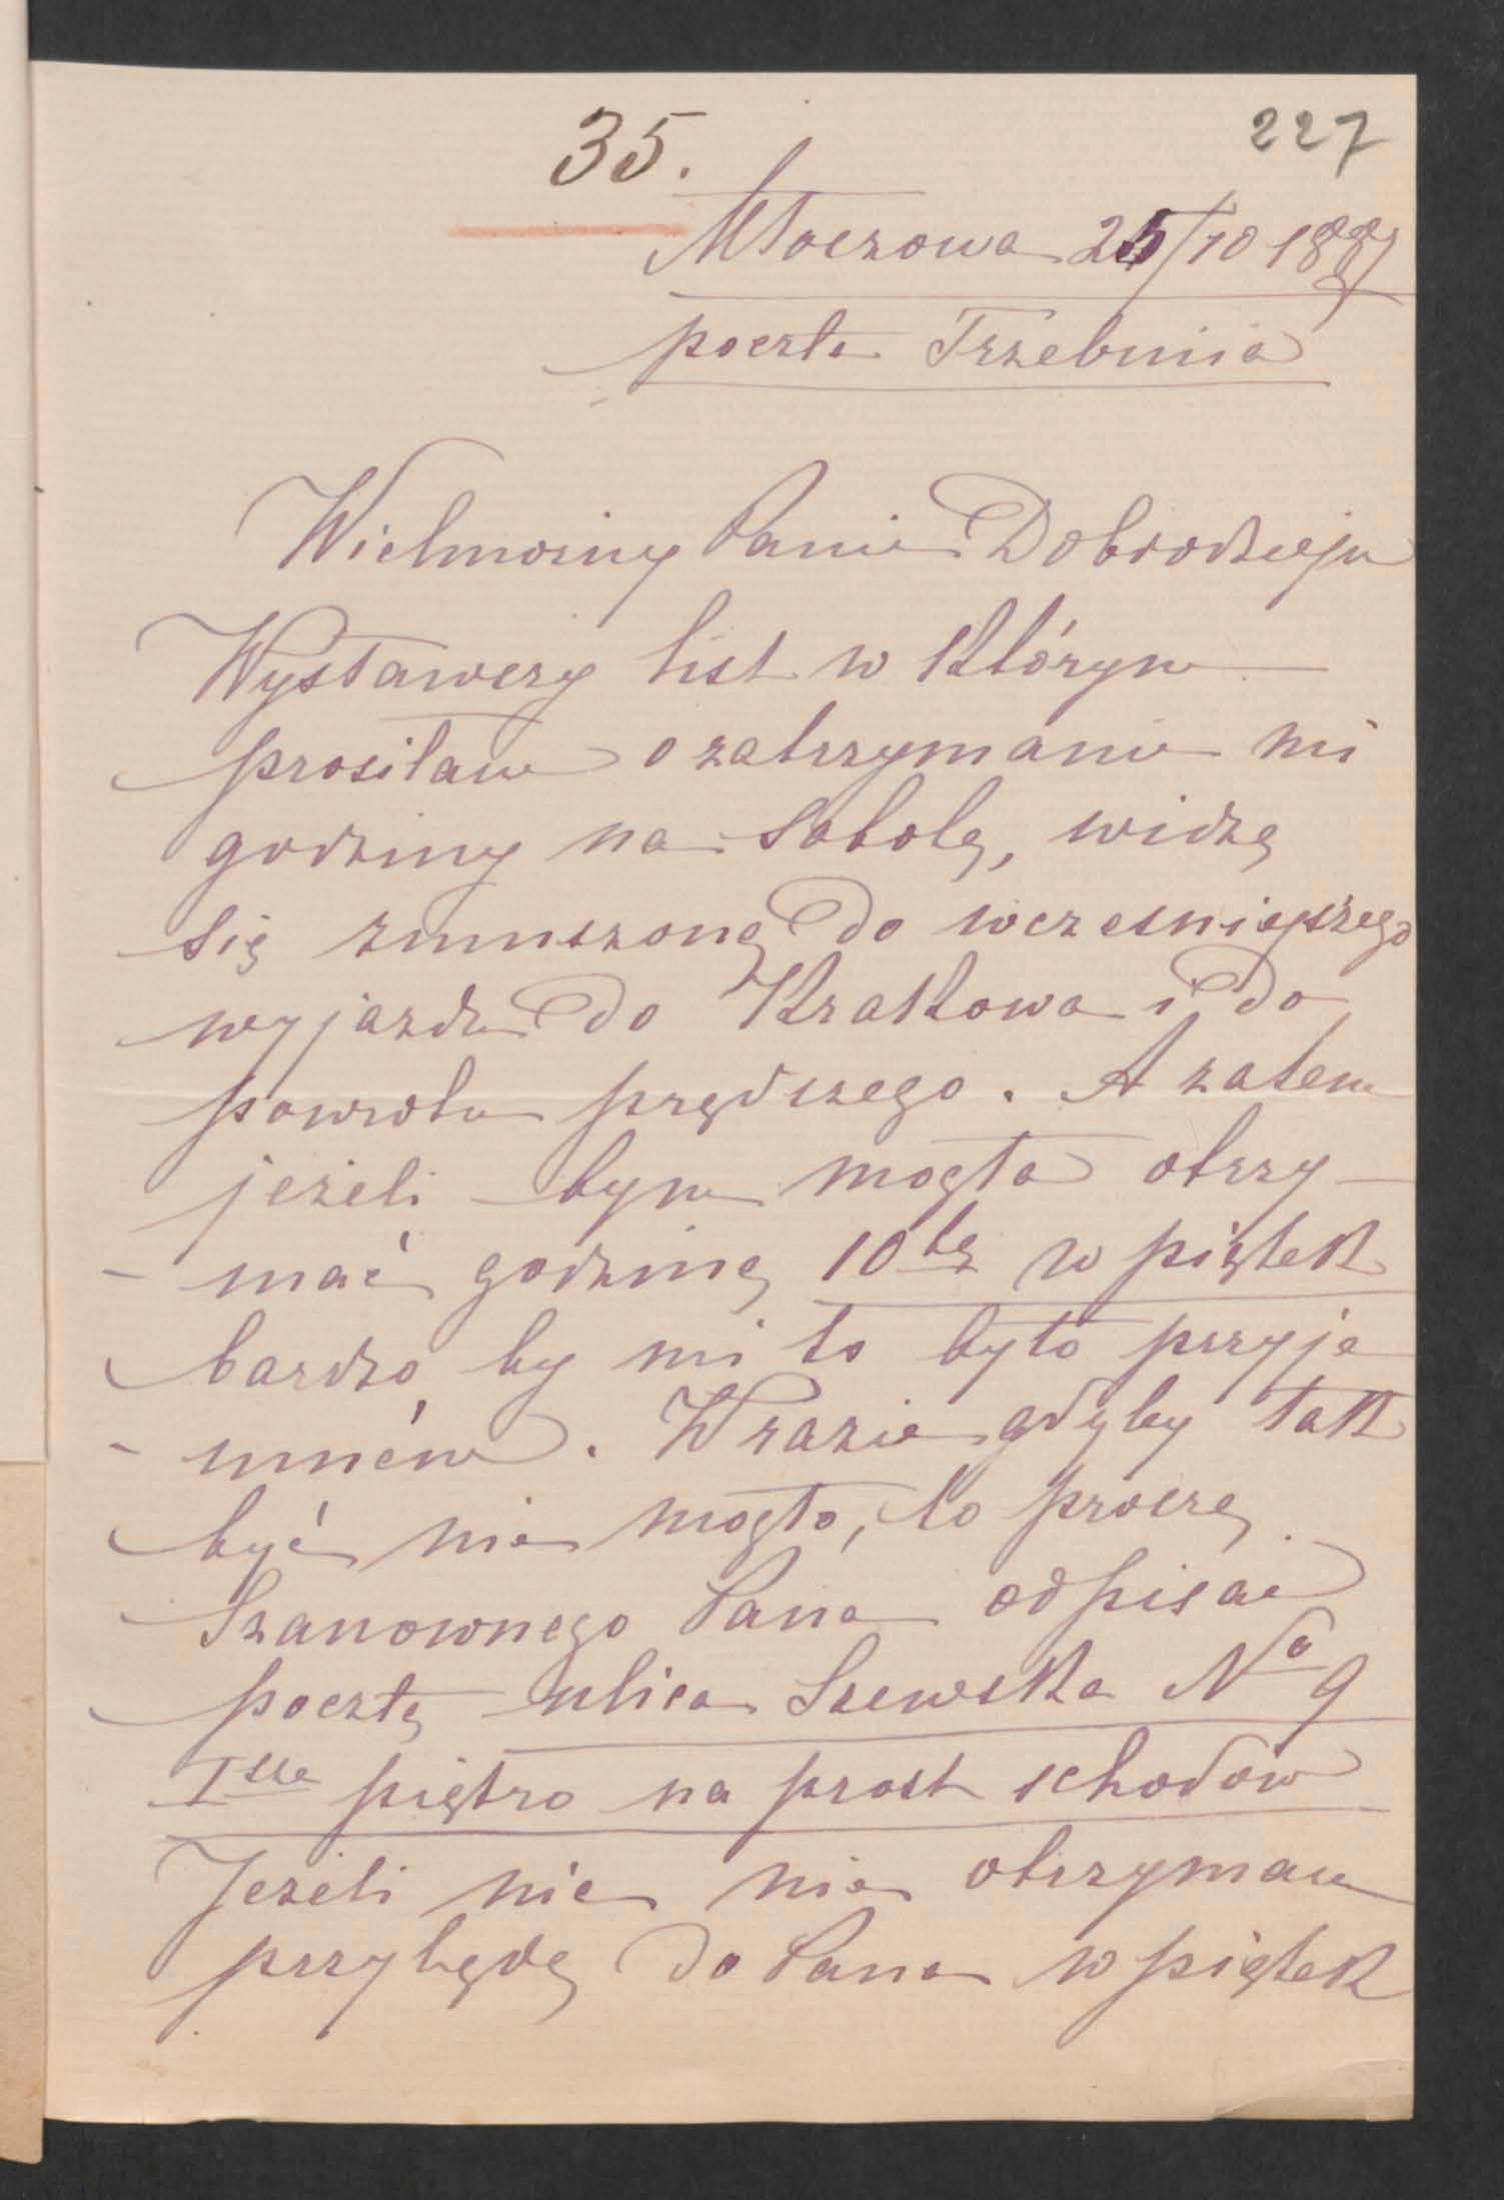 35.
227
Młoszowa 25/10 1887
poczta Trzebinia
Wielmożny Panie Dobrodzieju
Wysławszy list w którym
prosiłam o zatrzymanie mi
godziny na Sobotę, widzę
się zmuszoną do wcześniejszego
wyjazdu do Krakowa i do
powrotu prędszego. A zatem
jeżeli bym mogła otrzy-
-mać godzinę 10tą w piątek
bardzo by mi to było przyje
-mném. W razie gdyby tak
być nie mogło, to proszę
Szanownego Pana odpisać
pocztą ulica Szewska No 9
Isze piętro na prost schodów
Jeżeli nic nie otrzymam
przybędę do Pana w piątek